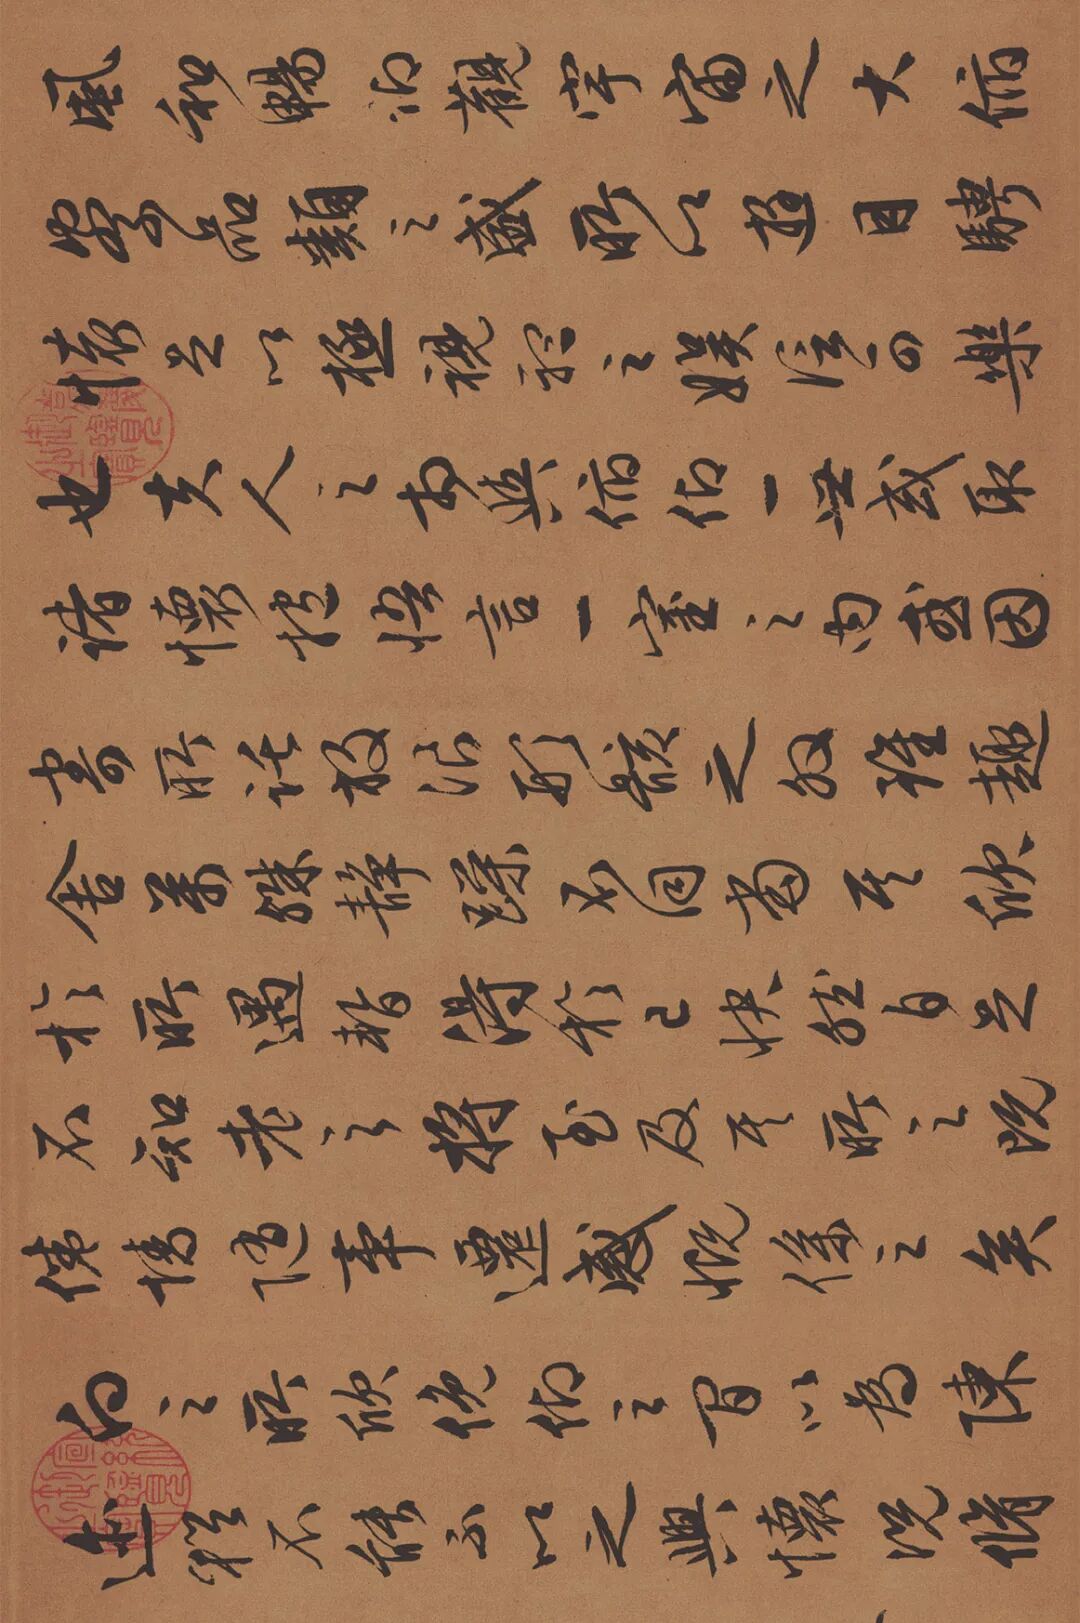 風和暢仰觀宇宙之大俯
察品類之盛所以遊目騁
懷足以極視聽之娛信可樂
也夫人之相與俯仰一世或取
諸懷抱悟言一室之内或因
寄所託放浪形骸之外雖趣
舍萬殊靜躁不同當其欣
於所遇暫得於己快然自足
不知老之將至及其所之既
惓情隨事遷感慨係之矣
向之所欣俛仰之間以為陳
迹猶不能不以之興懷況脩